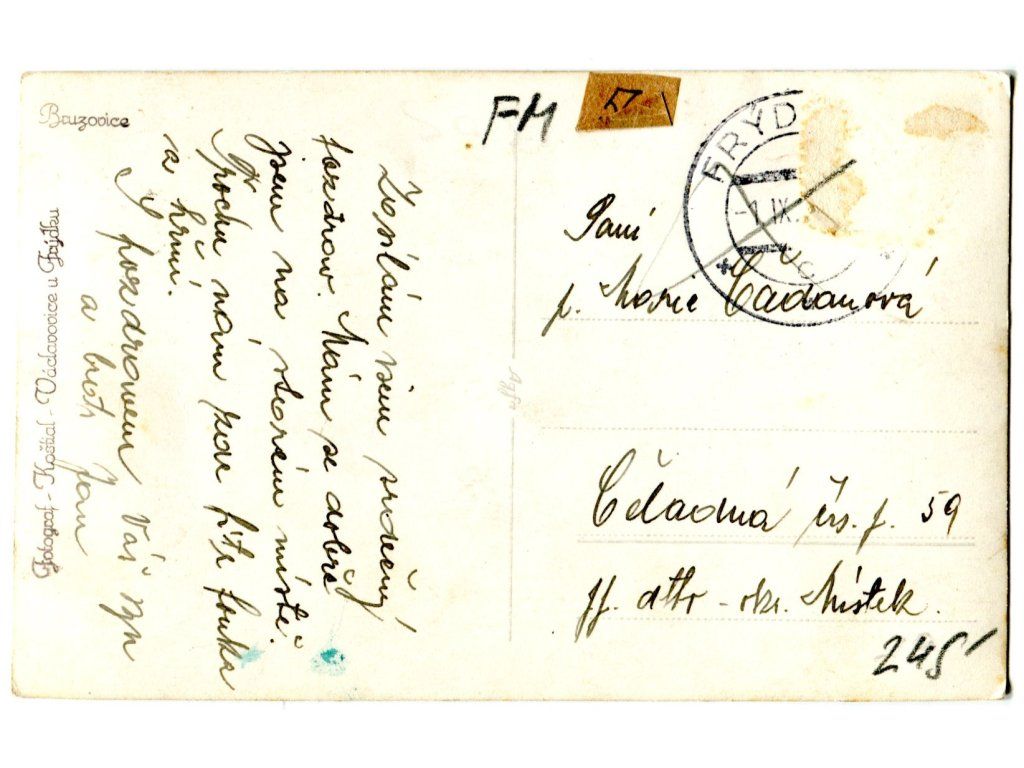 Bruzovice
Fotograf - Koštial - Václavovice u Frýdku
Zasílám Vám srdečný
pozdrav. Mám se dobře
jsem na starém místě.
Trochu nám zde fouká
a hřmí.
S pozdravem Váš syn
a bratr
Jan
FM
FRÝD
-1.IX.
Paní
p. Marie Čadanová
Čeladná čís. p. 59
p. dtto - okr. Místek.
245